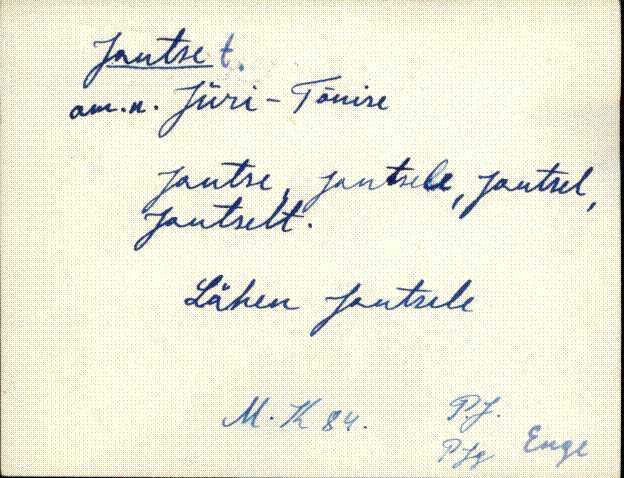 Jantse t.
am.n. Jüri-Tõnise
Jantse, Jantsele, Jantsel,
Jantselt.
Lähen Jantsele
M. K 84. P.J.
PJg Enge